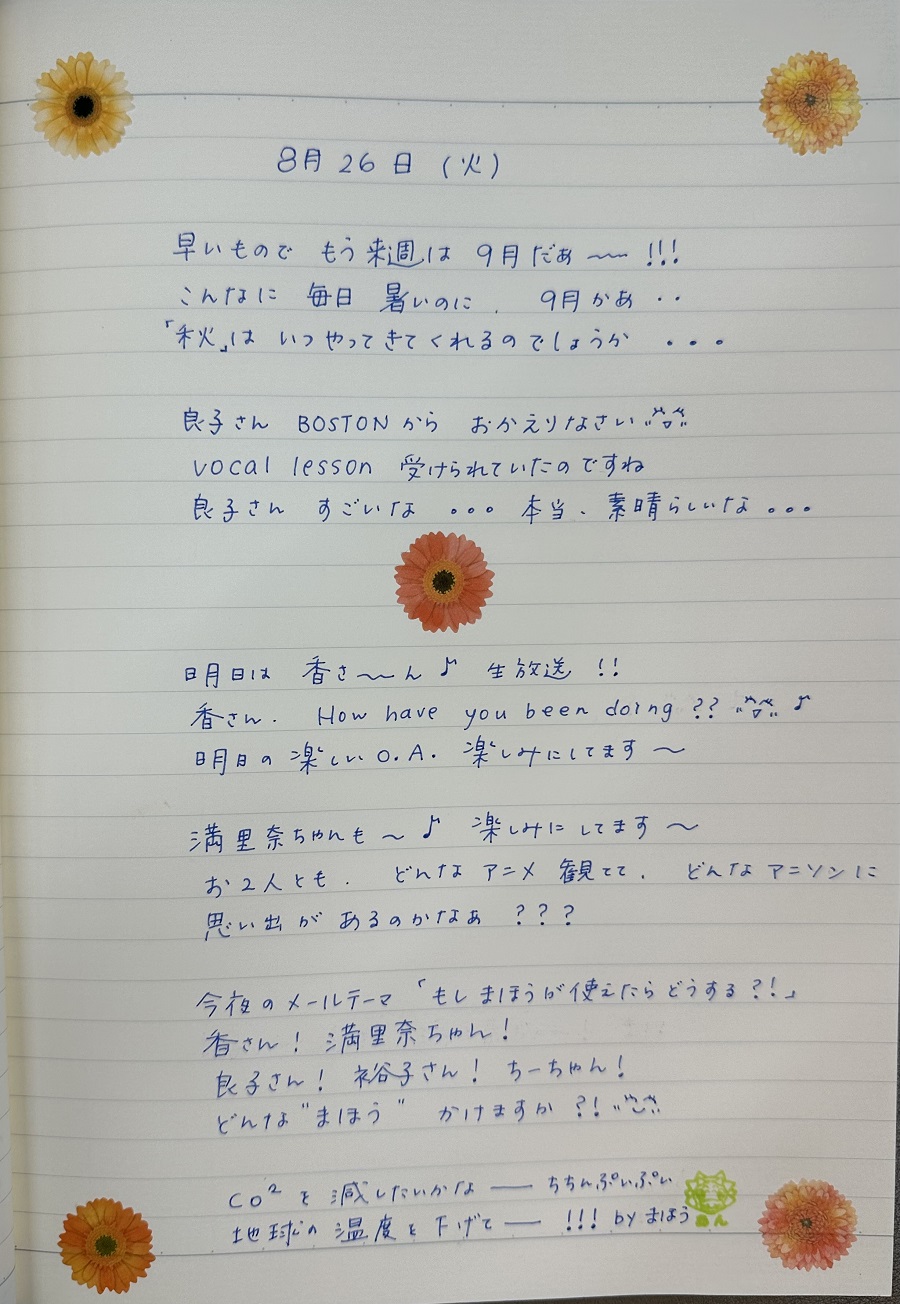 8月 26 日 (火)
早いもので もう来週は 9月だぁ〜〜 !!!
こんなに 毎日 暑いのに、 9月かぁ ・・
「秋」は いつやってきてくれるのでしょうか ・・・
良子さん BOSTONから おかえりなさい
vocal lesson 受けられていたのですね
良子さん すごいな 。。。 本当、素晴らしいな 。。。
明日は 香さ〜〜ん♪ 生放送 !!
香さん. How have you been doing ?? ♪
明日の 楽しい O.A. 楽しみにしてます〜
満里奈ちゃんも〜♪ 楽しみにしてます〜
お2人とも、 どんな アニメ 観てて、 どんな アニソンに
思い出が あるのかなぁ ???
今夜の メールテーマ 「もし まほうが使えたら どうする?!」
香さん! 満里奈ちゃん!
良子さん! 裕子さん! ちーちゃん!
どんな "まほう" かけますか ?!
CO² を 減したいかな ── ちちんぷいぷい
地球の 温度を 下げて ── !!! by まほう